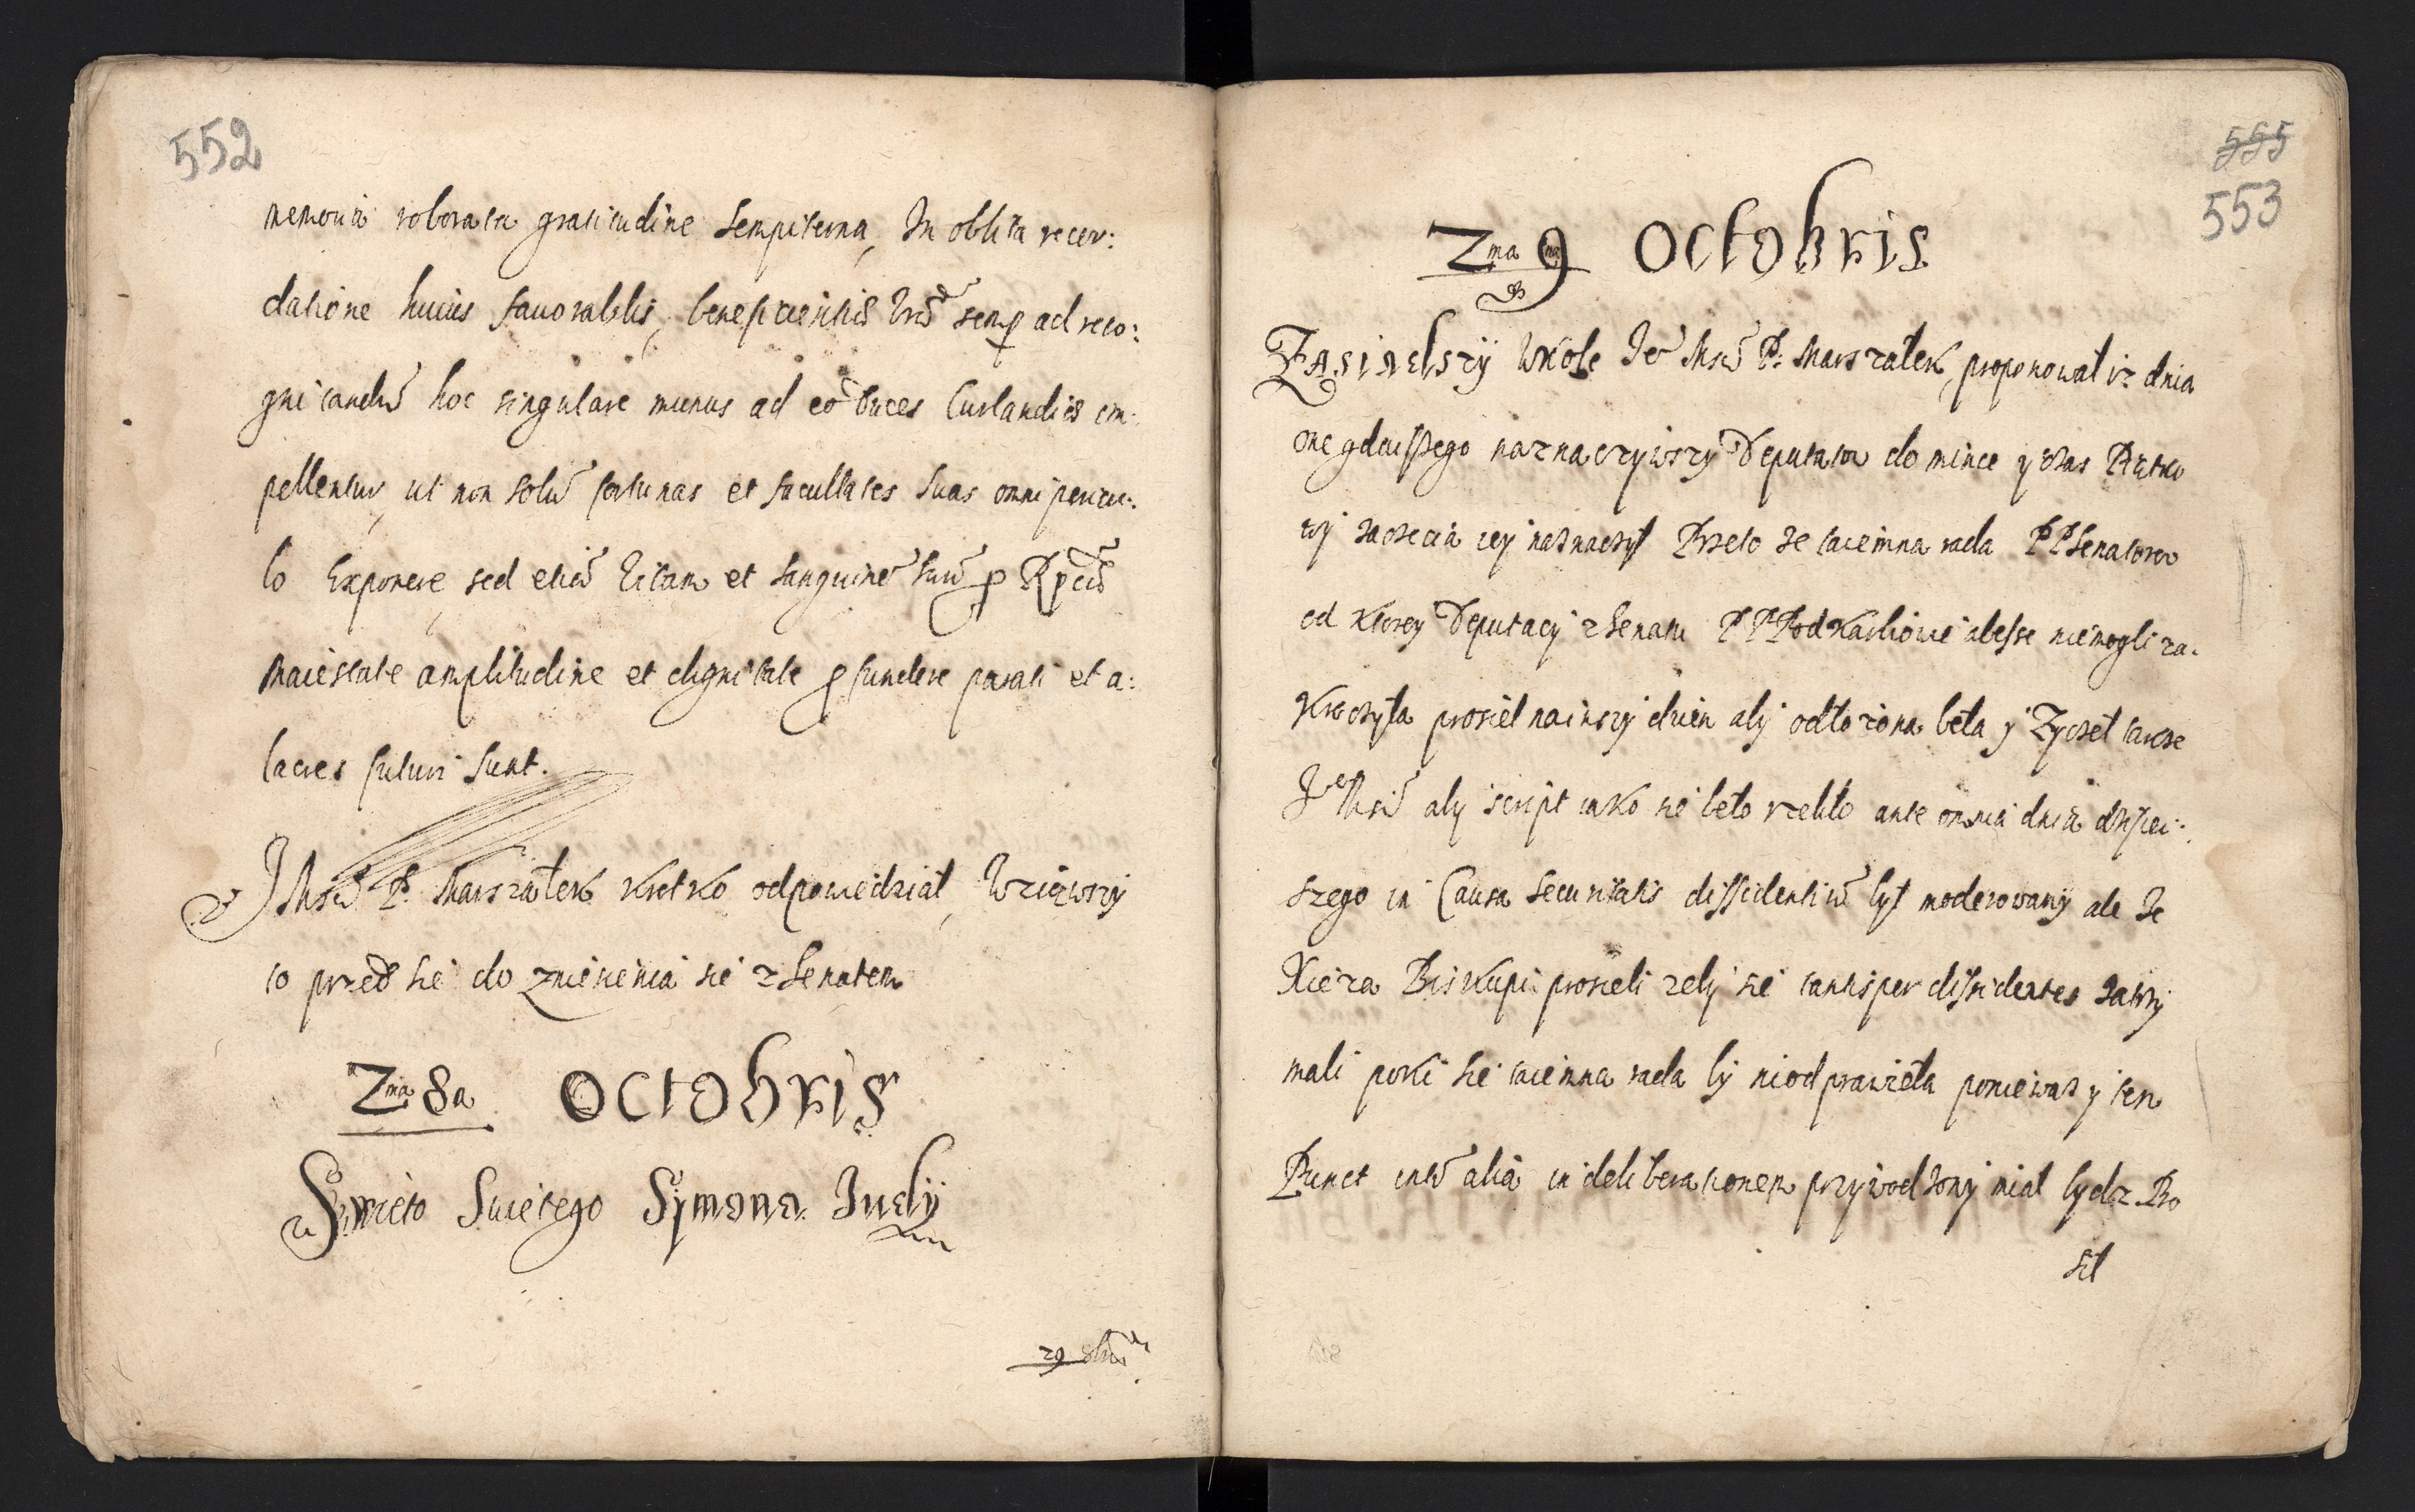 552
memoria roborata gratitudine sempiterna, In oblita recor:
datione huius favorabilis, semp ad reco:
gni hoc singulare munus ad duces Curlandiæ im:
pellentur, ut non solu fortunas et facultates suas omni pericu:
lo Exponere sed etia Vitam et sanguine suu
Maiestate amplitudine et dignitate fundere parati et a:
lacres futuri sunt.
P. Marszałek krotko odpowiedział, Wziąwszy
to przed sie do zniesienia sie z Senatem
Zma 8a OCTObris
Swieto Swietego Symona Judÿ
29
555
553
Zma 9na OCTObris
ZAsiadszÿ Wkole P: Marszałek, proponował iz dnia
onegdaissego naznaczywszy Deputatow do mince y czas Piątko
wy zaczecia iey naznaczył Przeto ze taiemna rada PP Senatorow
od ktorey Deputacy z Senatu PPPodKarbiowie abesse niemogli za:
Kroczyła prosieł nainszy dzien aby odłoziona beła y Zyczeł takze
aby script iako sie beło rzekło ante omnia dnia dzisiei:
szego in Causa securitatis dissidentiu był moderowany ale ze
Xieza Biskupi prosieli zeby sie tantisper dissidentes
mali poki sie taiemna rada by niodprawieła poniewaz y ten
Punct alia in deliberationem przywodzony miał bydz. Pro
sił